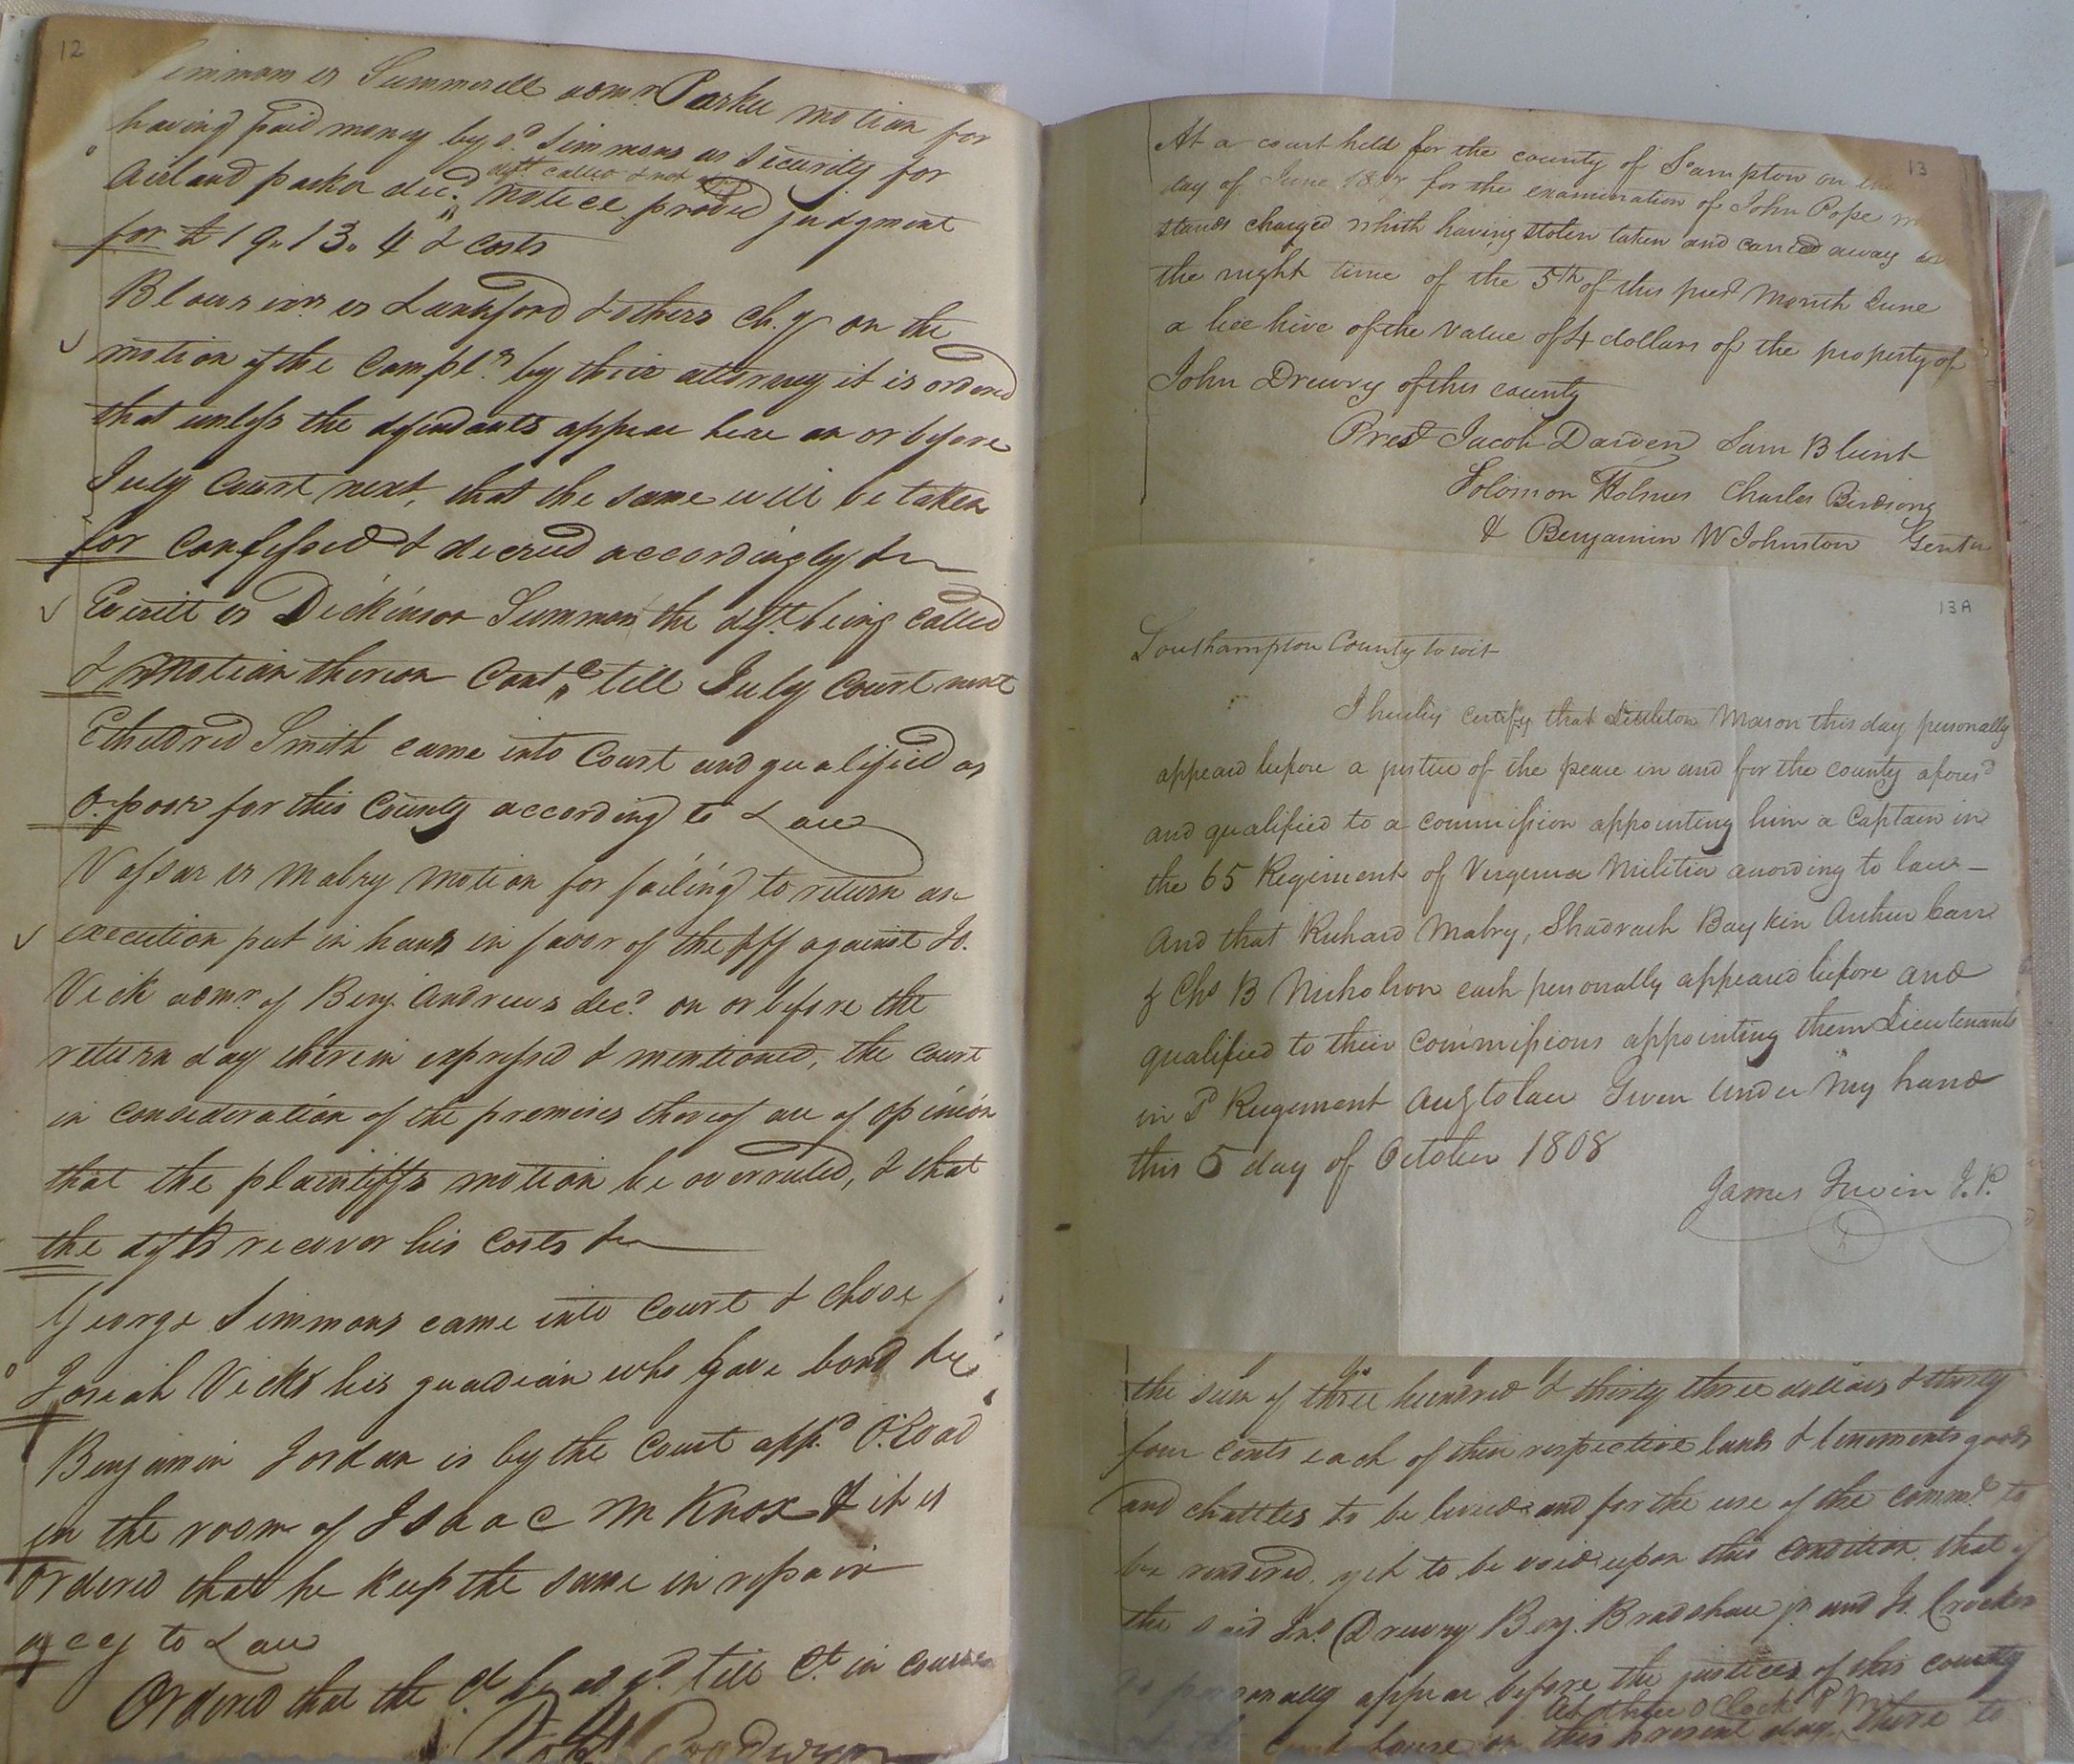 12
Simmons vs Summerell admr. Parker motion for
having paid money by sd. Simmons as security for
deft called & not
Airland parker decd. notice proved judgment
for £ 19.13.4 & costs
vs Lankford & others Ch.y on the
motion of the Complts. by their attorney it is ordered
that unless the defendants appear here on or before
July Court next, that the same will be taken
for confessed & decreed accordingly &c
Everitt vs Dickinson Summon the deft. being called
& motion thereon Contd. till July Court next
Etheldred Smith came into Court and qualified as
O. poor for this County according to Law
Vassar vs Mabry motion for failing to return an
execution put in hands in favor of the plff against Js.
Vick admr. of Benj. Andrews decd. on or before the
return day therein expressed & mentioned, the court
in consideration of the premises thereof are of opinion
that the plaintiffs motion be overruled, & that
the deftd recover his costs &c
George Simmons came into Court & choose
Josiah Vicks his guardian who gave bond &c
Benjamin Jordan is by the Court appd. O. Road
in the room of Isaac M Knox & it is
ordered that he keep the same in repair
accg to Law
Ordered that the Ct be adjd. till Ct. in course
Goodwyn
13
At a court held for the county of S'ampton on the
day of June 180 for the examination of John Pope
stands charged whith having stolen taken and carried away in
the night time of the 5th of this prest Month June
a bee hive of the value of 4 dollars of the property of
John Drewry of this county
Prest Jacob Darden Sam Blunt
Solomon Holmes Charles Birdsong
& Benjamin W Johnston Gentn
13A
Southampton County to wit
I hereby certify that Littleton Mason this day personally
appeard before a justice of the peace in and for the county aforesd
and qualified to a commission appointing him a Captain in
the 65 Regiment of Virginia Militia according to law —
And that Richard Mabry, Shadrach Baykin Arthur Carr
& Chs B Nicholson each personally appeared before and
qualified to their commissions appointing them Lieutenants
in sd Regiment accg to law Given under my hand
this 5 day of October 1808
James J.P.
the sum of three hundred & thirty three dollars & thirty
four cents each of their respective lands & tenements goods
and chattles to be levied and for the use of the commth to
be rendered. yet to be void upon this condition. that if
the said Jno. Drewry Benj. Bradshaw jr and Js. Crocker
do personally appear before the justices of this county
At three o Clock P M
house on this present day, there to